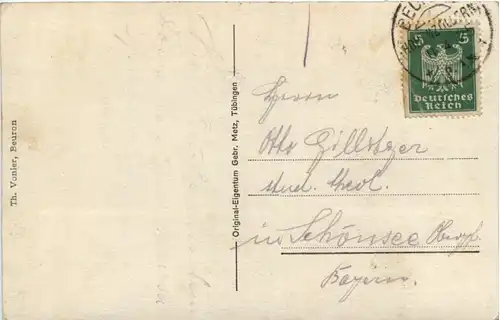 Th. Vonier, Beuron
Original-Eigentum Gebr. Metz, Tübingen
5 5
Deutsches
Reich
Herrn
Otto
stud. theol.
in Schönsee Oberpf.
Bayern.